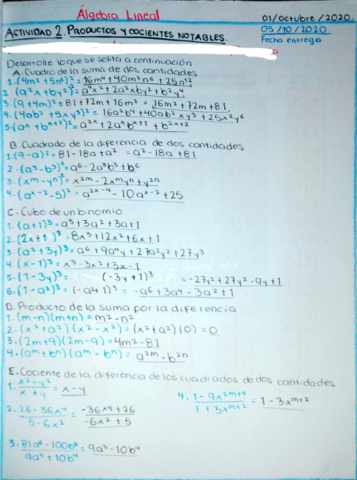 Álgebra Lineal
01/octubre/2020
ACTIVIDAD 2. PRODUCTOS Y COCIENTES NOTABLES.
05/10/2020
Fecha entrega
Desarrolle lo que se solita a continuación
A. Cuadro de la suma de dos cantidades
1. (4m² + 5n⁶)² = 16m⁴ + 40m²n⁶ + 25n¹²
2. (a²x + by²)² =
3. (9 + 4m)² = 81 + 72m + 16m² = 16m² + 72m + 81
4. (4ab² + 5xy³)² = 16a²b⁴ + 40ab²xy³ + 25x²y⁶
5. (aˣ + bˣ⁺¹)² = a²ˣ + 2aˣbˣ⁺¹ + b²ˣ⁺²
B. Cuadrado de la diferencia de dos cantidades
1. (9 - a)² = 81 - 18a + a² = a² - 18a + 81
2. (a³ - b³)² = a⁶ - 2a³b³ + b⁶
3. (xᵐ - yⁿ)² = x²ᵐ - 2xᵐyⁿ + y²ⁿ
4. (aˣ⁻² - 5)² = a²ˣ⁻⁴ - 10aˣ⁻² + 25
C. Cubo de un binomio
1. (a + 1)³ = a³ + 3a² + 3a + 1
2. (2x + 1)³ = 8x³ + 12x² + 6x + 1
3. (a² + 3y)³ = a⁶ + 9a⁴y + 27a²y² + 27y³
4. (x - 1)³ = x³ - 3x² + 3x - 1
5. (1 - 3y)³ = (-3y + 1)³ = -27y³ + 27y² - 9y + 1
6. (1 - a²)³ = (-a² + 1)³ = -a⁶ + 3a⁴ - 3a² + 1
D. Producto de la suma por la diferencia
1. (m - n)(m + n) = m² - n²
2. (x² + a²)(x² - x²) = (x² + a²)(0) = 0
3. (2m + 9)(2m - 9) = 4m² - 81
4. (aᵐ + bⁿ)(aᵐ - bⁿ) = a²ᵐ - b²ⁿ
E. Cociente de la diferencia de los cuadrados de dos cantidades
1. x² - y² / x + y = x - y
4. 1 - 9x²ᵐ⁺⁴ / 1 + 3xᵐ⁺² = 1 - 3xᵐ⁺²
2. 26 - 36x⁴ / 5 - 6x² = -36x⁴ + 26 / -6x² + 5
3. 81a⁶ - 100b⁸ / 9a³ + 10b⁴ = 9a³ - 10b⁴